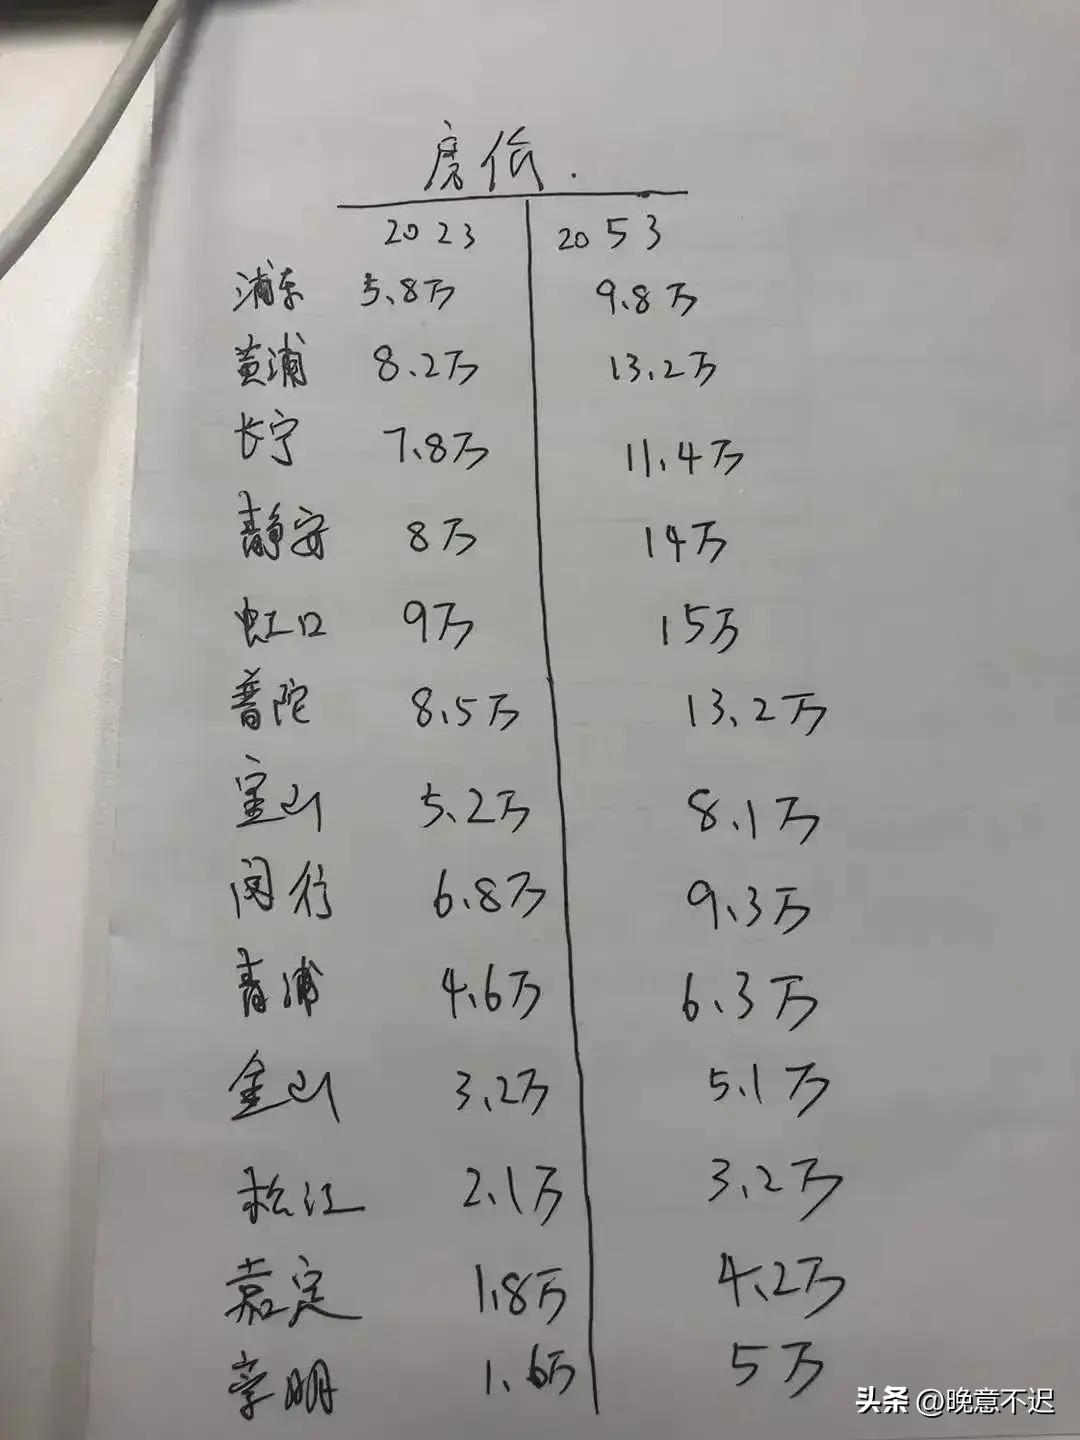 房价.
2023 2053
浦东 5.8万 9.8万
黄浦 8.2万 13.2万
长宁 7.8万 11.4万
静安 8万 14万
虹口 9万 15万
普陀 8.5万 13.2万
宝山 5.2万 8.1万
闵行 6.8万 9.3万
青浦 4.6万 6.3万
金山 3.2万 5.1万
松江 2.1万 3.2万
嘉定 1.8万 4.2万
崇明 1.6万 5万
头条 @晚意不迟